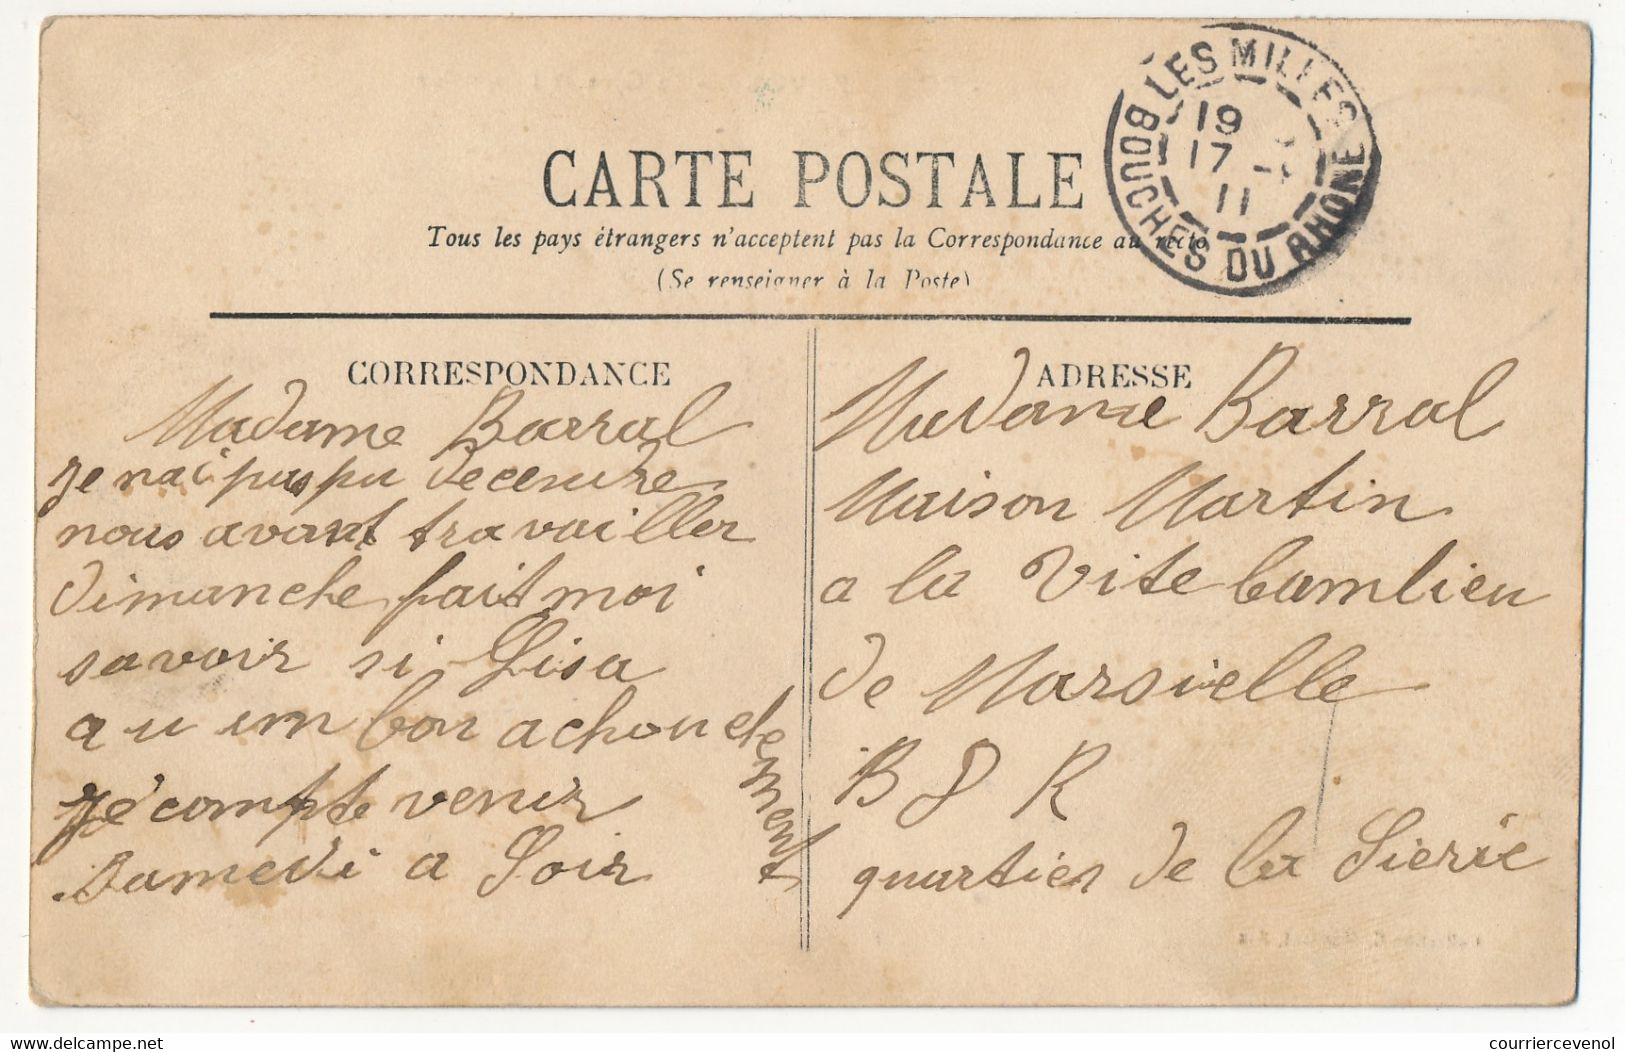 CARTE POSTALE
Tous les pays étrangers n'acceptent pas la Correspondance au recto
(Se renseigner à la Poste)
LES MILLES
19
17
11
BOUCHES DU RHONE
CORRESPONDANCE
Madame Barral
je nai pas pu decendre
nous avant travailler
dimanche fait moi
savoir si Lisa
a u un bon achouche
ment
je compte venir
Samedi a Soir
ADRESSE
Madame Barral
Maison Martin
a la Vite bamlieu
de Marsielle
B D R
quartier de la
courriercevenol